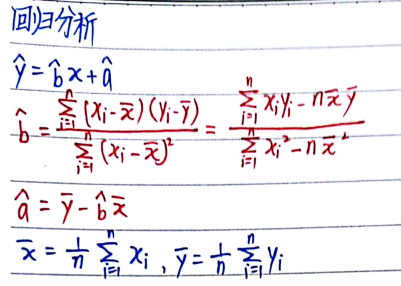 回归分析
ŷ = b̂x + â
b̂ = \frac{\sum_{i=1}^{n} (x_i - \bar{x})(y_i - \bar{y})}{\sum_{i=1}^{n} (x_i - \bar{x})^2} = \frac{\sum_{i=1}^{n} x_i y_i - n\bar{x}\bar{y}}{\sum_{i=1}^{n} x_i^2 - n\bar{x}^2}
â = \bar{y} - b̂\bar{x}
\bar{x} = \frac{1}{n} \sum_{i=1}^{n} x_i , \bar{y} = \frac{1}{n} \sum_{i=1}^{n} y_i